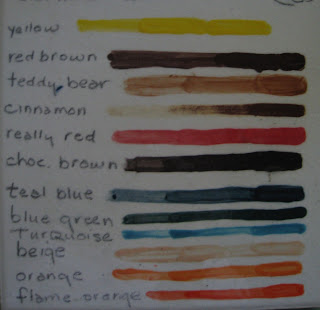 yellow
red brown
teddy bear
cinnamon
really red
choc. brown
teal blue
blue green
Turquoise
beige
orange
flame orange